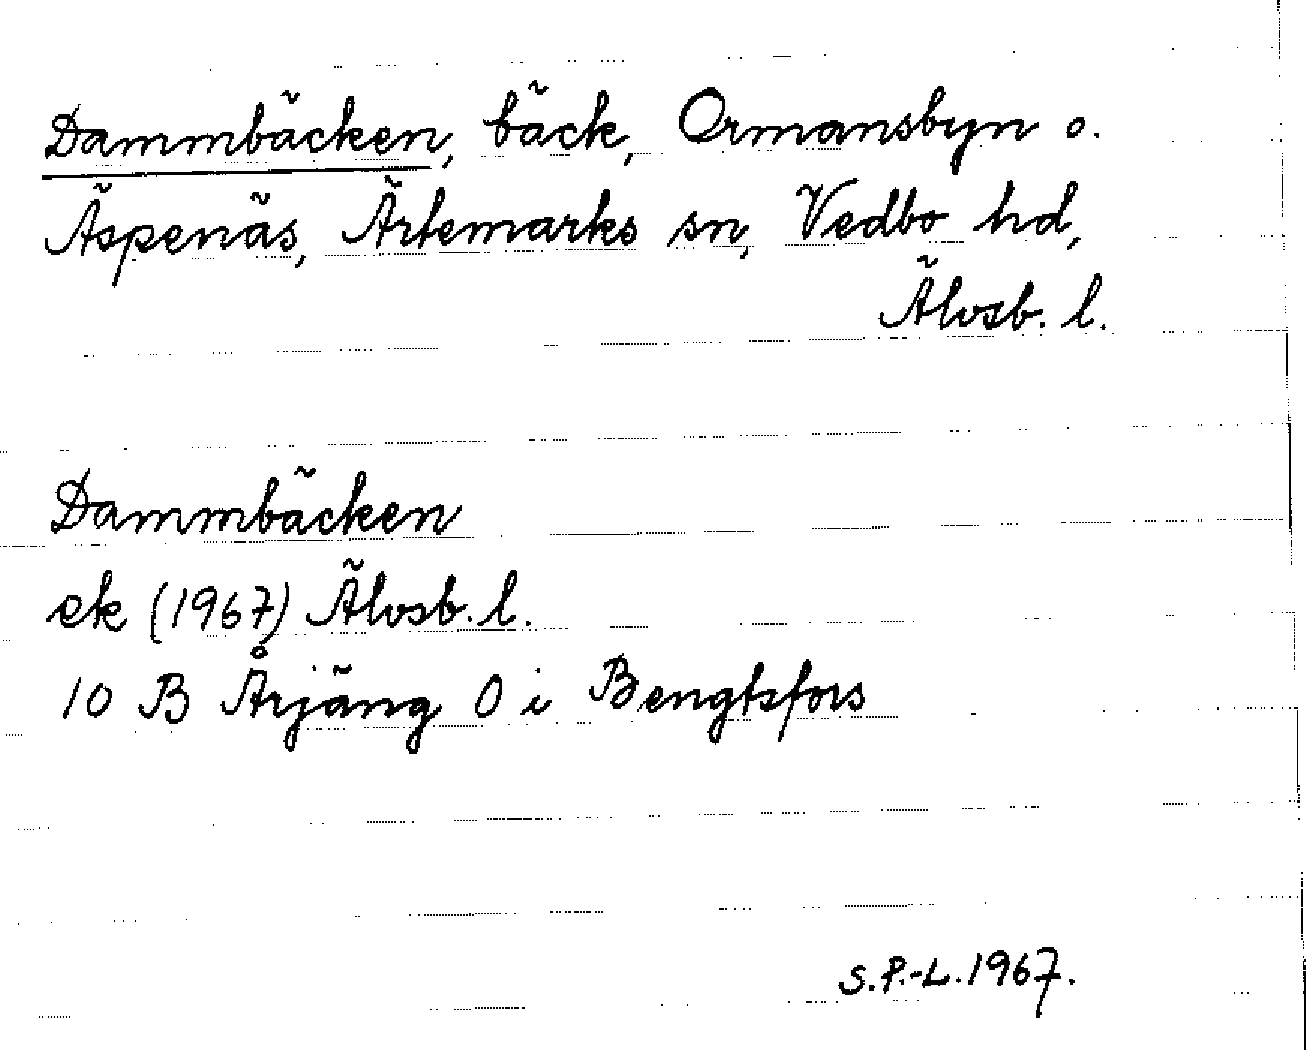 Dammbäcken, bäck, Ormansbyn o.
Äspenäs, Ärtemarks sn, Vedbo hd,
Älvsb. l.
Dammbäcken
ek (1967) Älvsb. l.
10 B Årjäng O i Bengtsfors
S.P.-L. 1967.